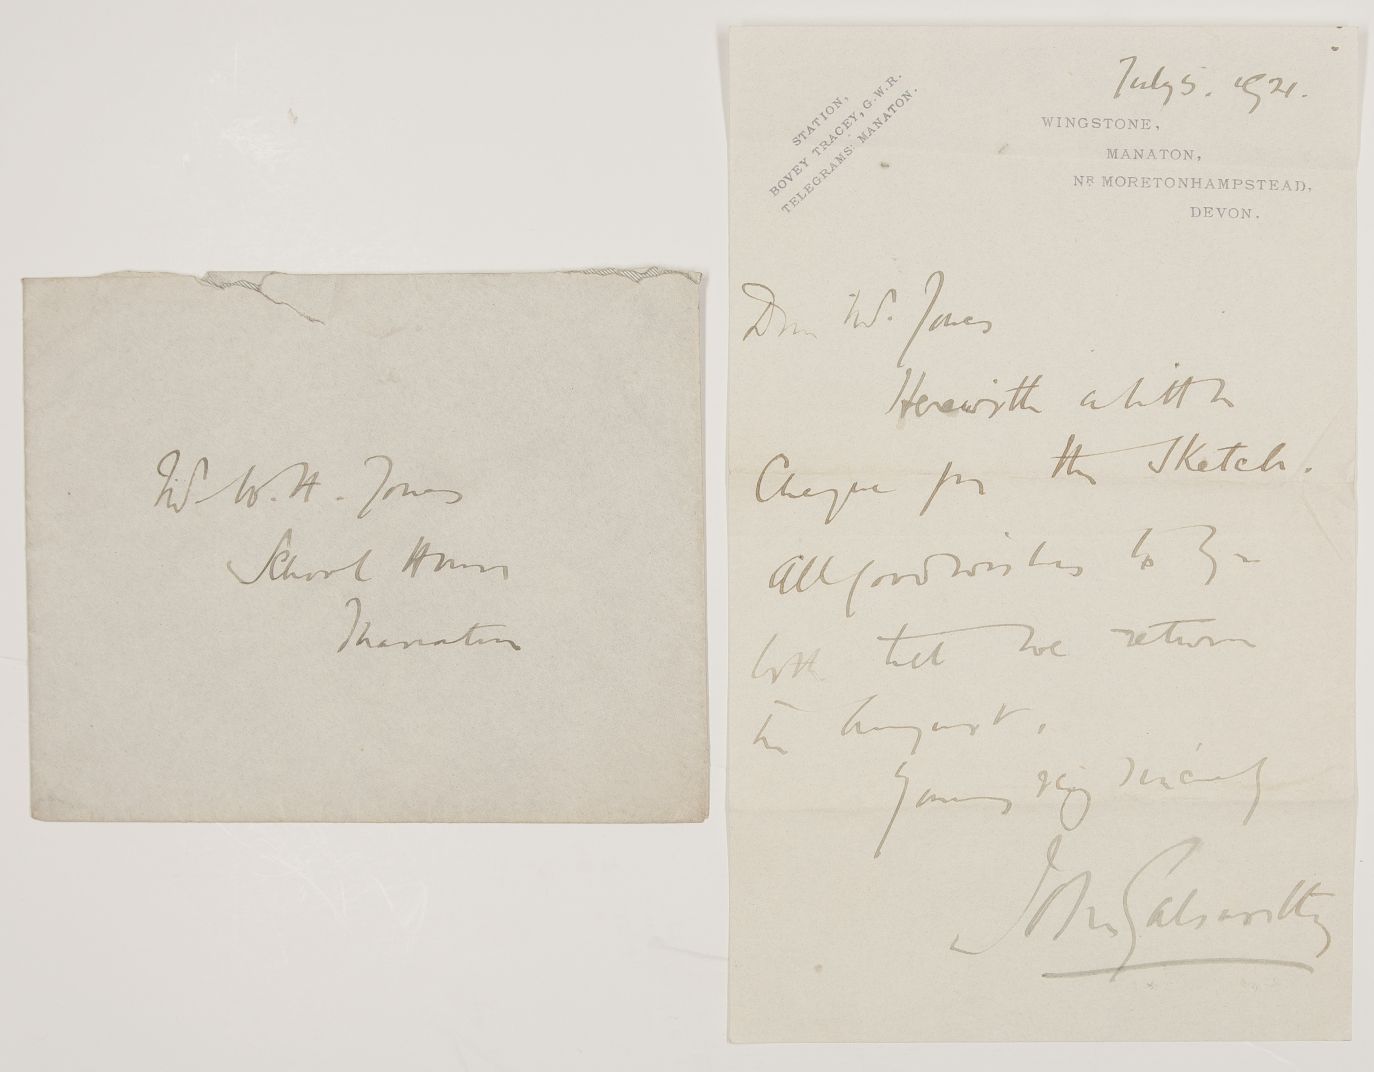 Mr. W. H. Jones
School House
Manaton
STATION,
BOVEY TRACEY, G.W.R.
TELEGRAMS: MANATON.
July 5. 1921.
WINGSTONE,
MANATON,
NR MORETONHAMPSTEAD,
DEVON.
Dear Mr. Jones
Herewith a little
Cheque for the Sketch.
All good wishes to you
both till we return
in August.
Yours very sincerely
John Galsworthy